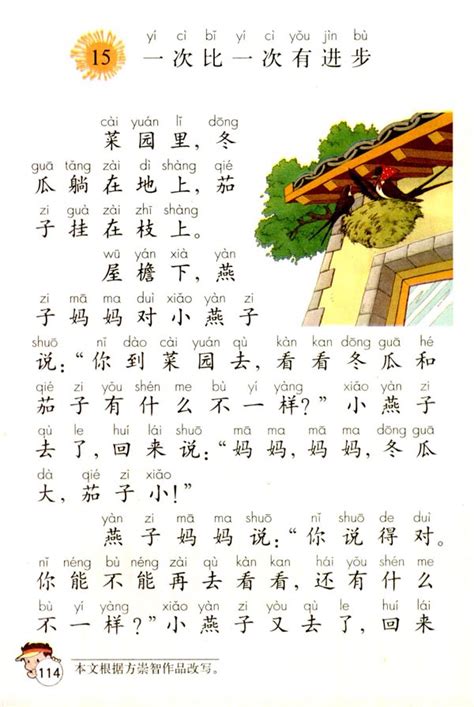 yí cì bǐ yí cì yǒu jìn bù
15 一次比一次有进步
cài yuán lǐ dōng
菜园里，冬
guā tǎng zài dì shàng qié
瓜躺在地上，茄
zi guà zài zhī shàng
子挂在枝上。
wū yán xià yàn
屋檐下，燕
zi mā ma duì xiǎo yàn zi
子妈妈对小燕子
shuō nǐ dào cài yuán qù kàn kan dōng guā hé
说：“你到菜园去，看看冬瓜和
qié zi yǒu shén me bù yí yàng xiǎo yàn zi
茄子有什么不一样？”小燕子
qù le huí lái shuō mā ma mā ma dōng guā
去了，回来说：“妈妈，妈妈，冬瓜
dà qié zi xiǎo
大，茄子小！”
yàn zi mā ma shuō nǐ shuō de duì
燕子妈妈说：“你说得对。
nǐ néng bù néng zài qù kàn kan hái yǒu shén me
你能不能再去看看，还有什么
bù yí yàng xiǎo yàn zi yòu qù le huí lái
不一样？”小燕子又去了，回来
本文根据方崇智作品改写。
114